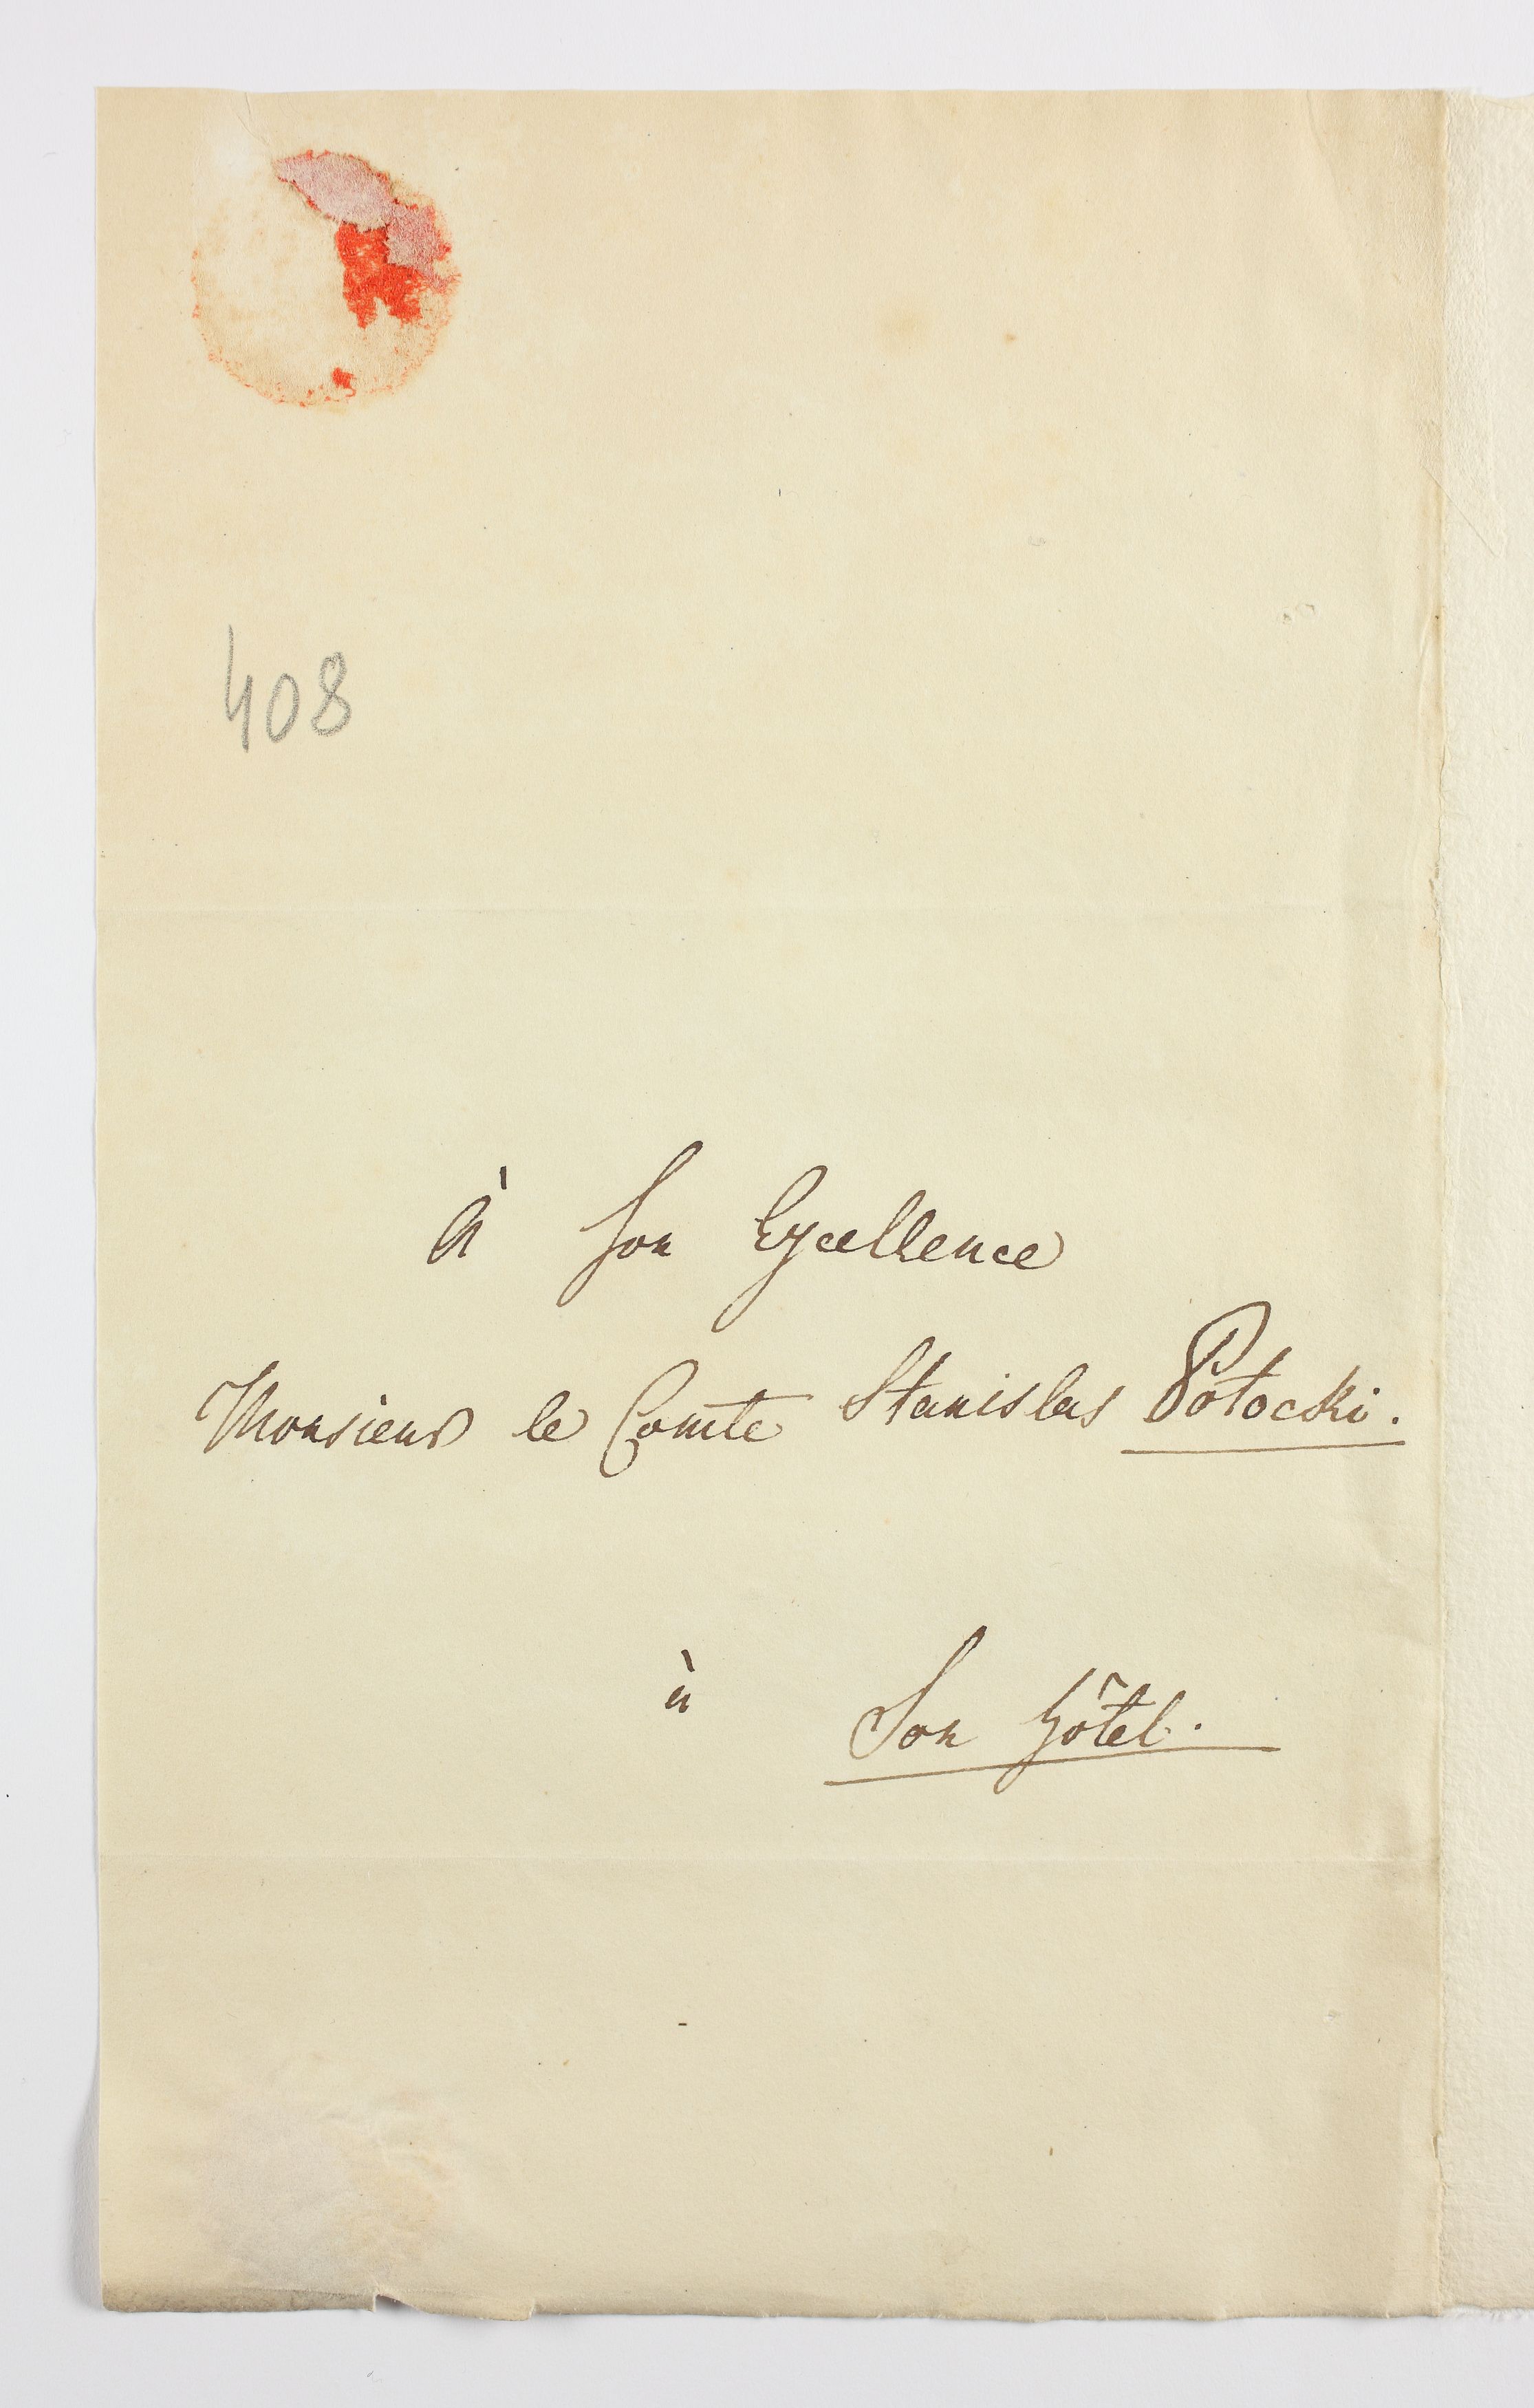 408
À Son Excellence
Monsieur le Comte Stanislas Potocki.
à Son hôtel.